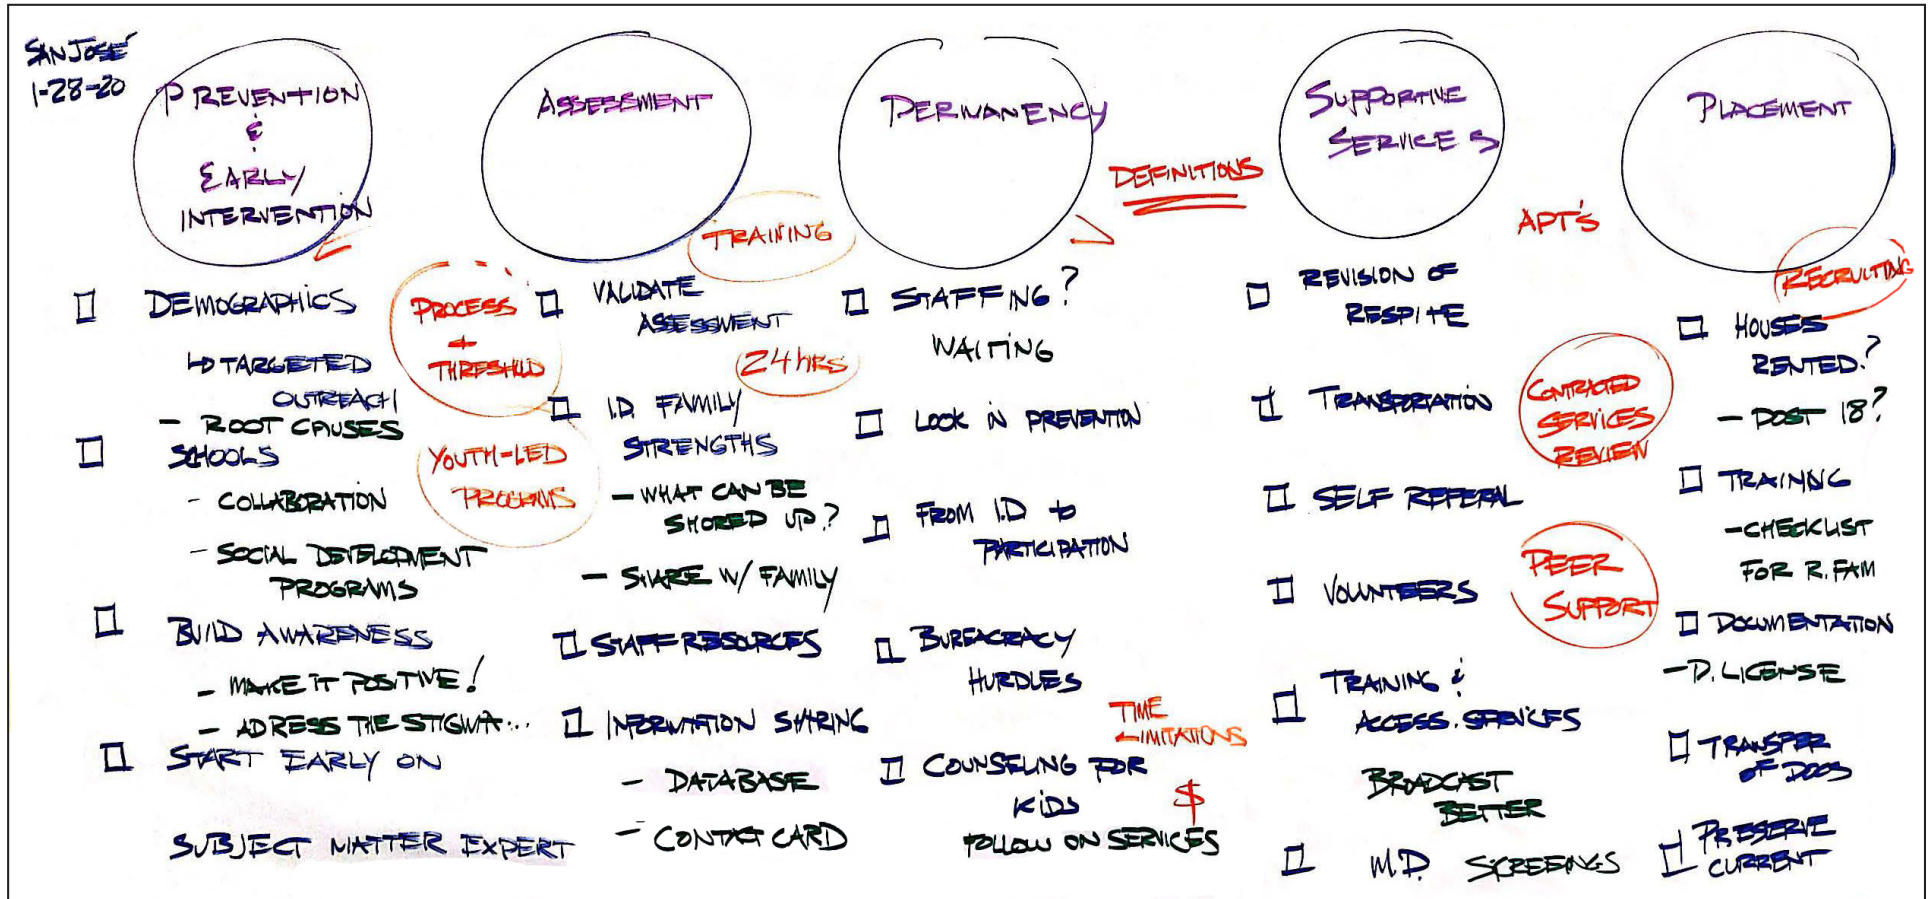 SAN JOSÉ
1-28-20
PREVENTION
&
EARLY
INTERVENTION
DEMOGRAPHICS
↳ TARGETED
OUTREACH
- ROOT CAUSES
SCHOOLS
- COLLABORATION
- SOCIAL DEVELOPMENT
PROGRAMS
BUILD AWARENESS
- MAKE IT POSITIVE!
- ADRESS THE STIGMA...
START EARLY ON
SUBJECT MATTER EXPERT
PROCESS
+
THRESHOLD
YOUTH-LED
PROGRAMS
ASSESSMENT
TRAINING
VALIDATE
ASSESSMENT
24 HRS
I.D. FAMILY
STRENGTHS
- WHAT CAN BE
SHORED UP?
- SHARE W/ FAMILY
STAFF RESOURCES
INFORMATION SHARING
- DATABASE
- CONTACT CARD
PERMANENCY
DEFINITIONS
STAFFING?
WAITING
LOOK IN PREVENTION
FROM I.D to
PARTICIPATION
BUREACRACY
HURDLES
TIME
LIMITATIONS
COUNSELING FOR
KIDS
$
FOLLOW ON SERVICES
SUPPORTIVE
SERVICES
APT'S
REVISION OF
RESPITE
TRANSPORTATION
CONTRACTED
SERVICES
REVIEW
SELF REFERAL
VOLUNTEERS
PEER
SUPPORT
TRAINING &
ACCESS. SERVICES
BROADCAST
BETTER
M.D. SCREEINGS
PLACEMENT
RECRUITING
HOUSES
RENTED?
- POST 18?
TRAINING
- CHECKLIST
FOR R. FAM
DOCUMENTATION
- D. LICENSE
TRANSFER
OF DOCS
PRESERVE
CURRENT